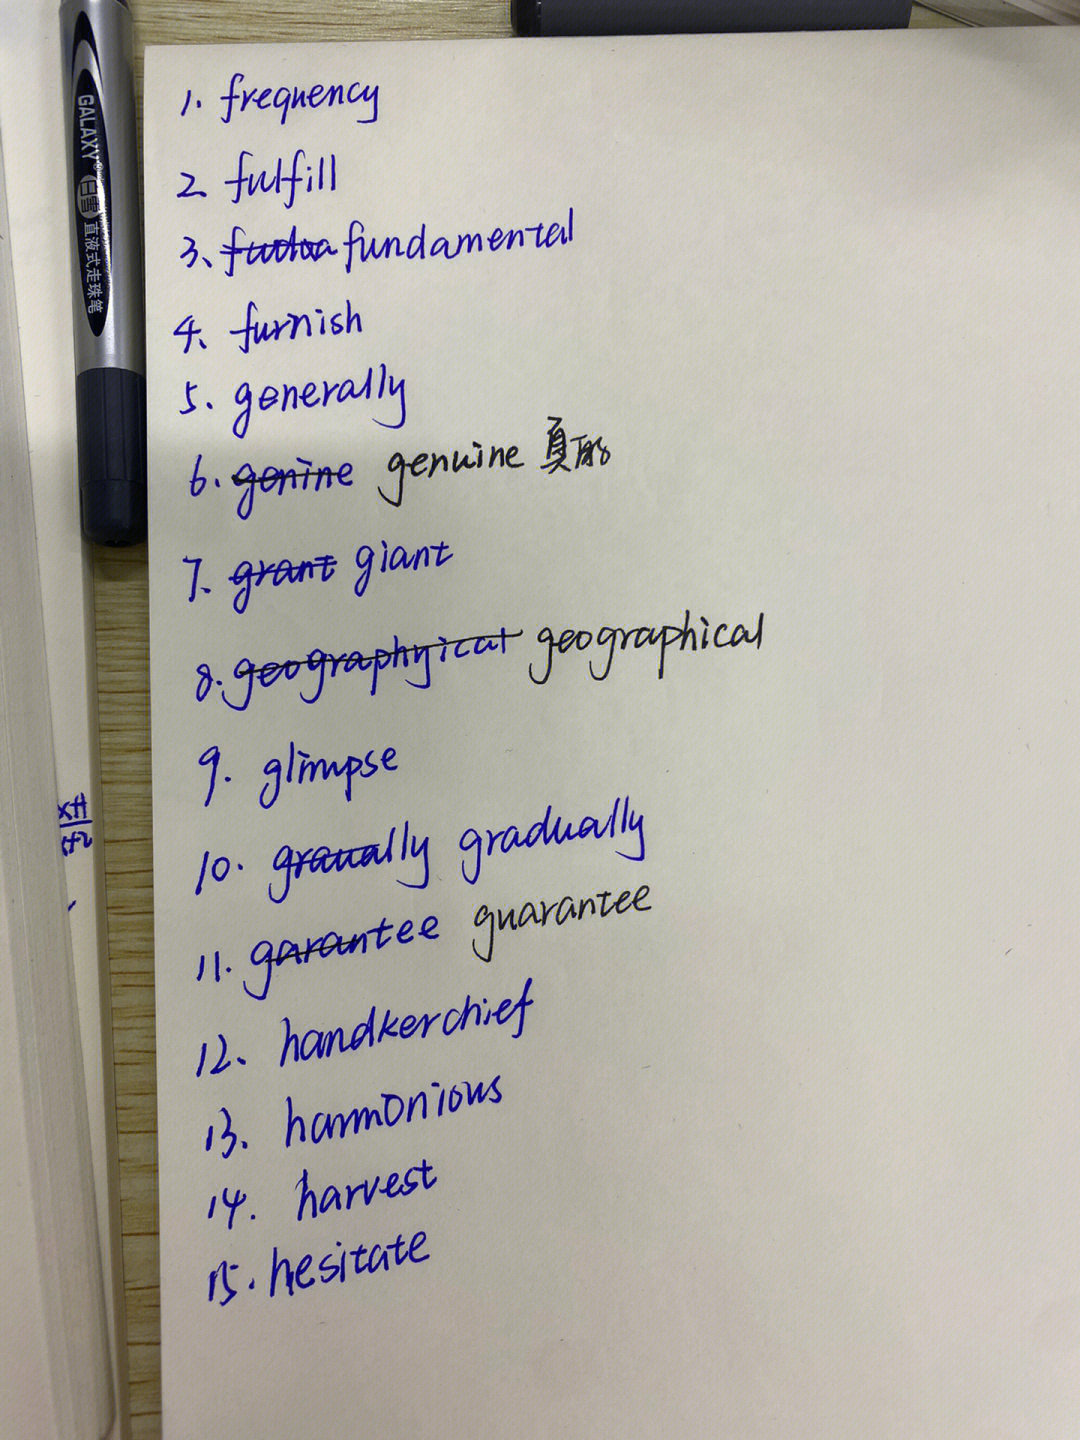 GALAXY®
白雪 直液式走珠笔
1. frequency
2 fulfill
3、 fundamental
4、 furnish
5. generally
6. genine genuine 真的
7. grant giant
8. geographyical geographical
9. glimpse
10. graually gradually
11. garantee guarantee
12、 handkerchief
13. harmonious
14. harvest
15. hesitate